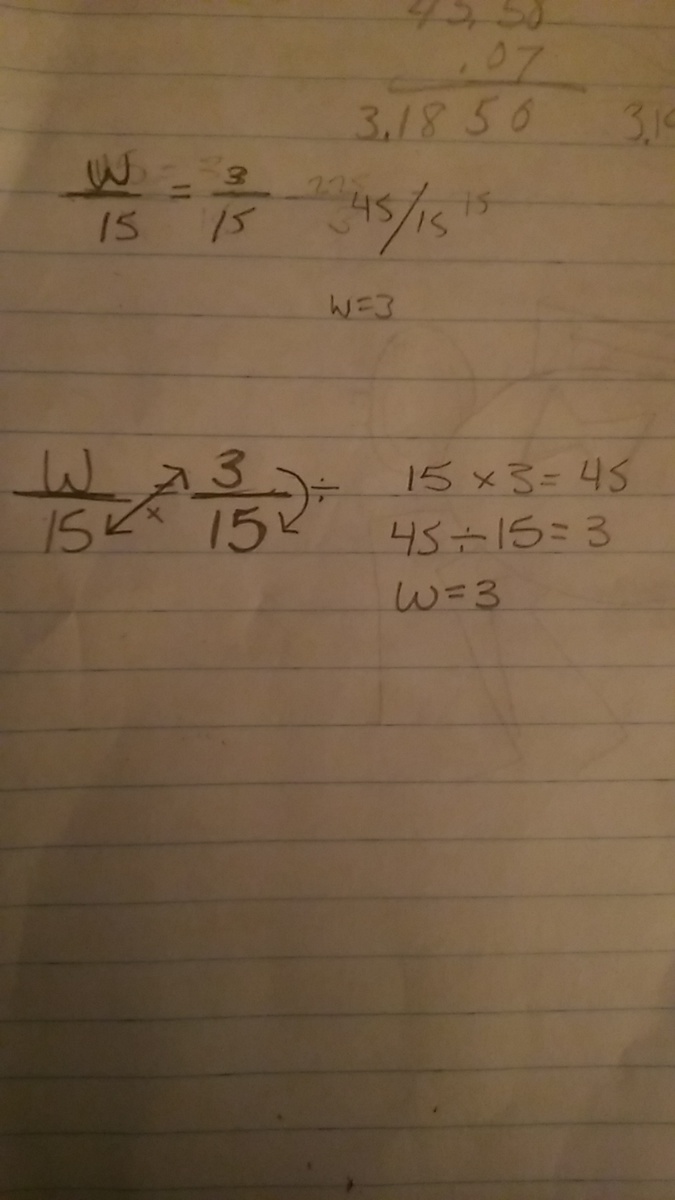 45.50
.07
3.1850 3.19
W/15 = 3/15 45/15 15
W=3
W/15 × 3/15 ÷ 15 × 3 = 45
45 ÷ 15 = 3
W=3